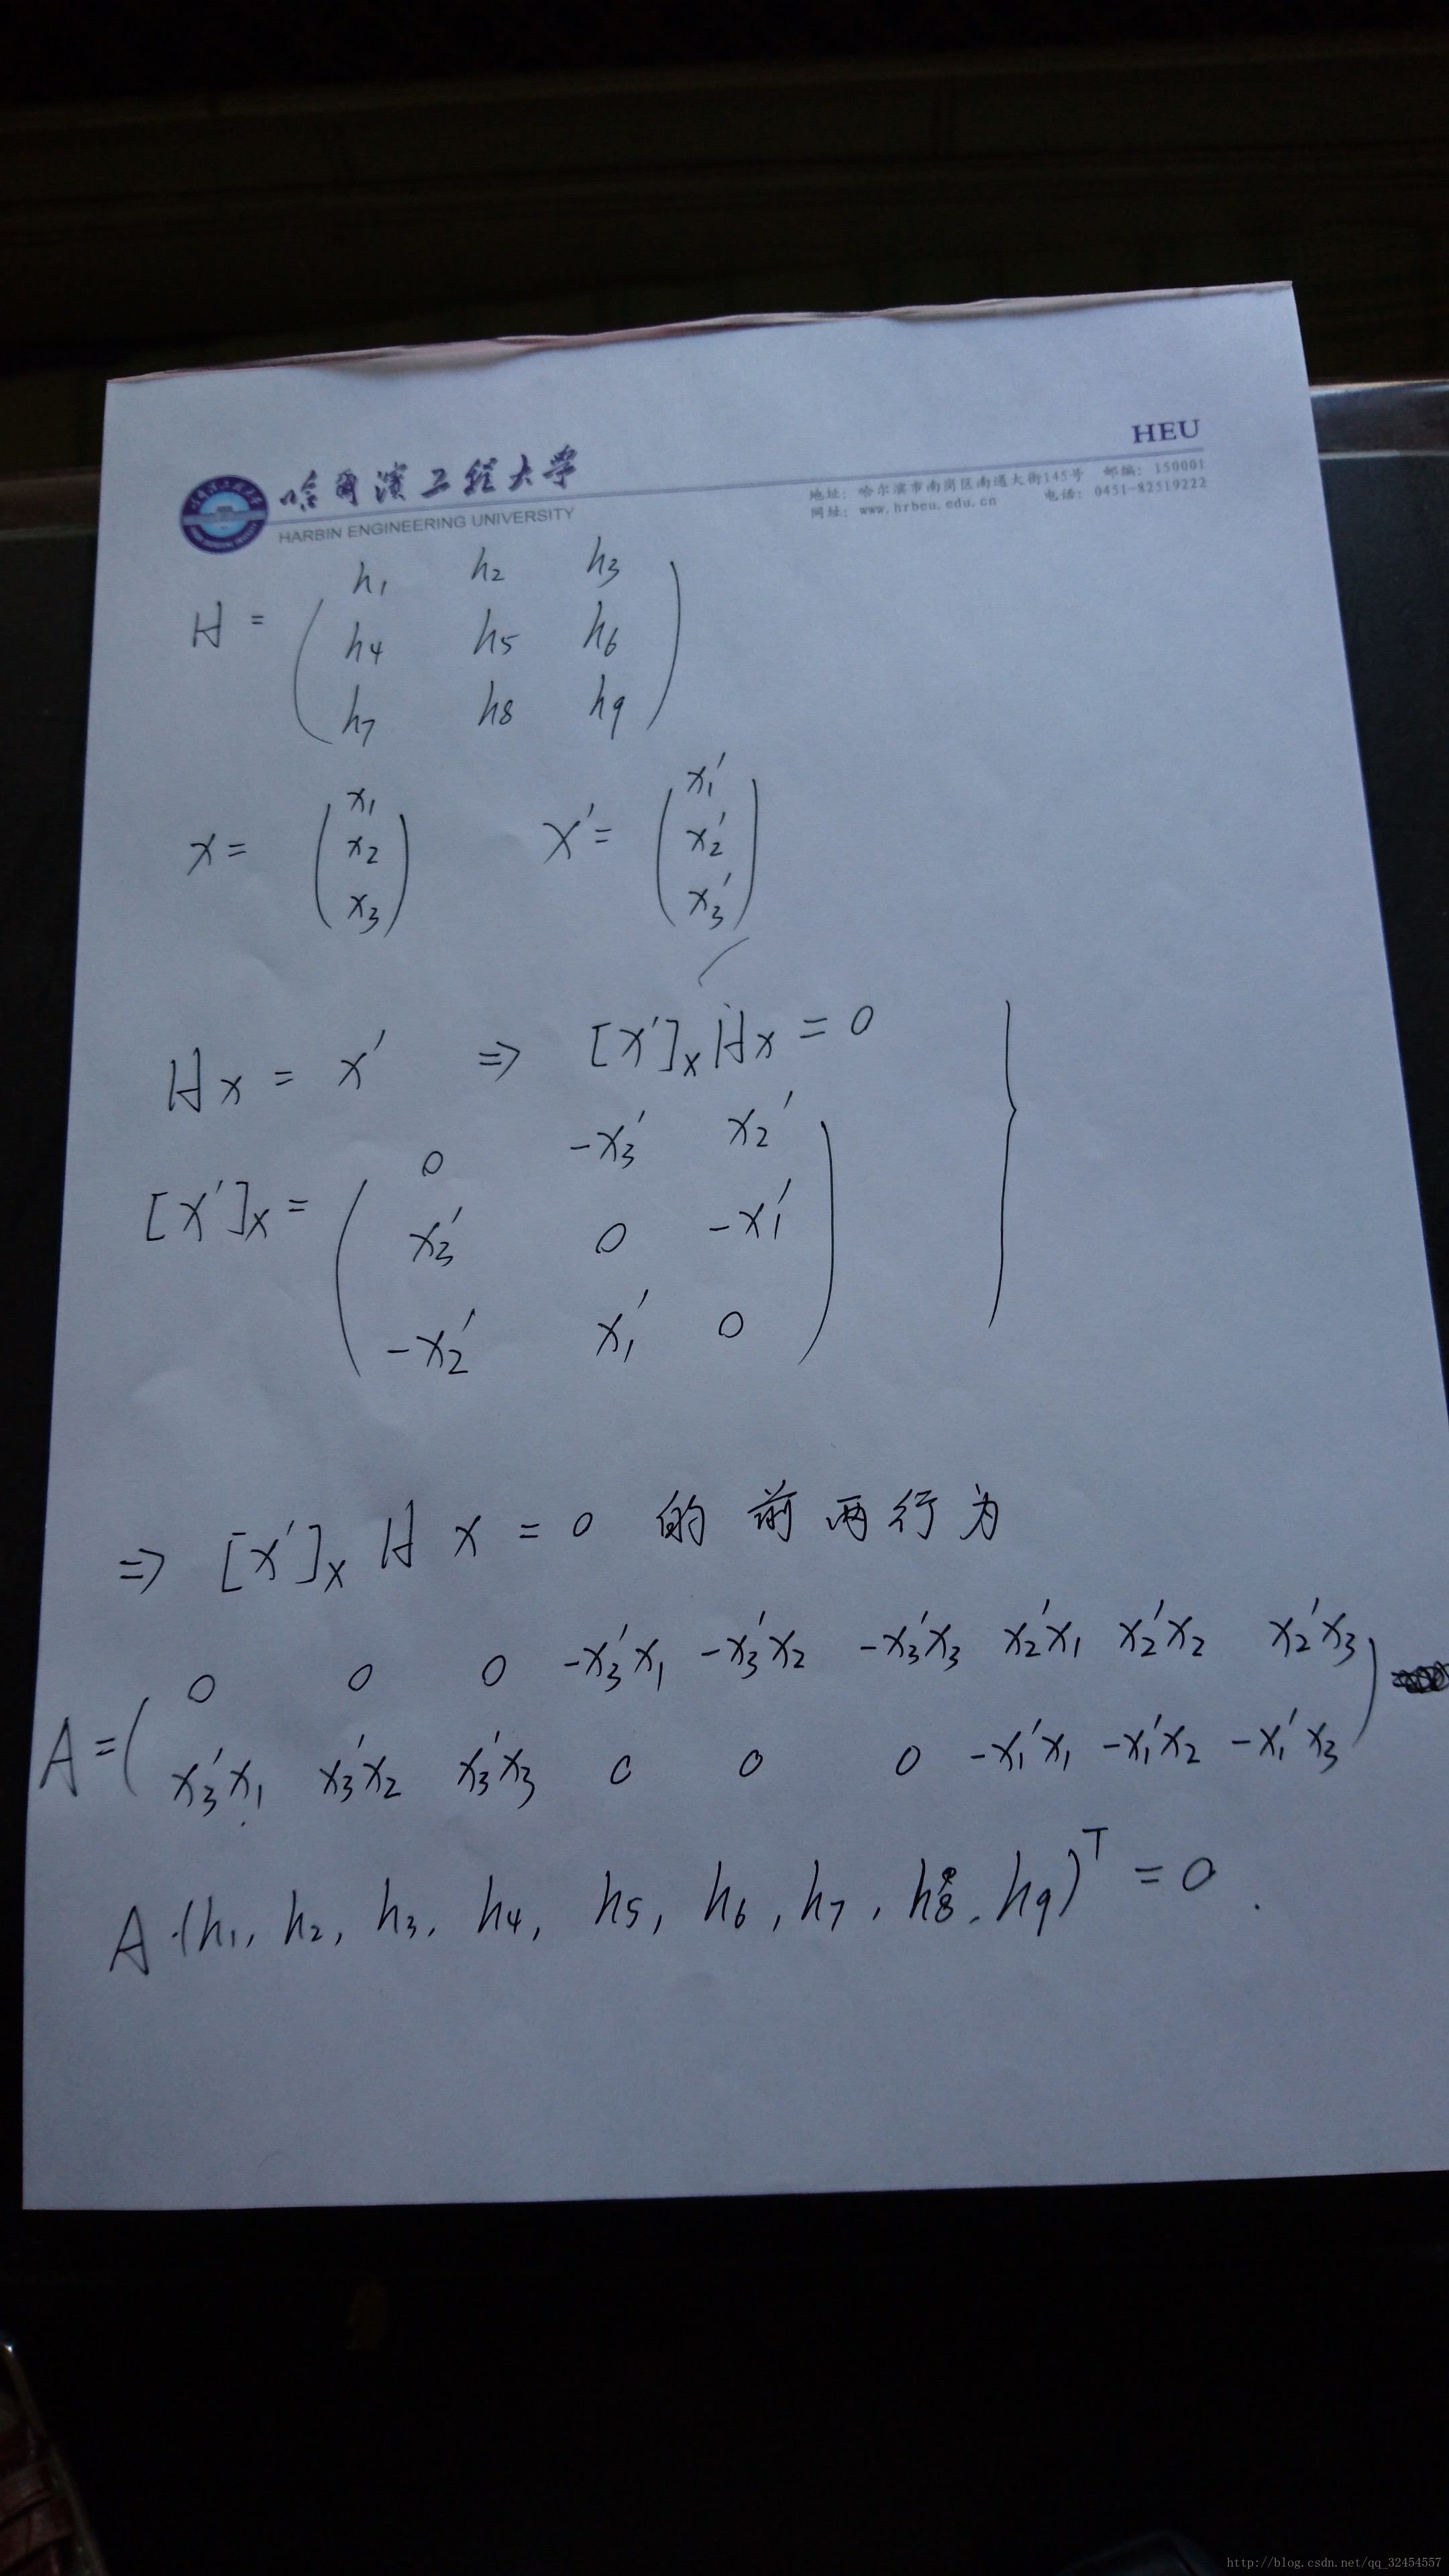 HEU
哈尔滨工程大学
HARBIN ENGINEERING UNIVERSITY
地址：哈尔滨市南岗区南通大街145号 邮编：150001
网址：www.hrbeu.edu.cn 电话：0451-82519222
H = ( h₁ h₂ h₃
h₄ h₅ h₆
h₇ h₈ h₉ )
x = ( x₁ x₂ x₃ ) x' = ( x₁' x₂' x₃' )
Hx = x' ⇒ [x']ₓHx = 0
[x']ₓ = ( 0 -x₃' x₂'
x₃' 0 -x₁'
-x₂' x₁' 0 )
⇒ [x']ₓ H x = 0 的前两行为
A = ( 0 0 0 -x₃'x₁ -x₃'x₂ -x₃'x₃ x₂'x₁ x₂'x₂ x₂'x₃
x₃'x₁ x₃'x₂ x₃'x₃ 0 0 0 -x₁'x₁ -x₁'x₂ -x₁'x₃ )
A·(h₁, h₂, h₃, h₄, h₅, h₆, h₇, h₈, h₉)ᵀ = 0.
http://blog.csdn.net/qq_32454557